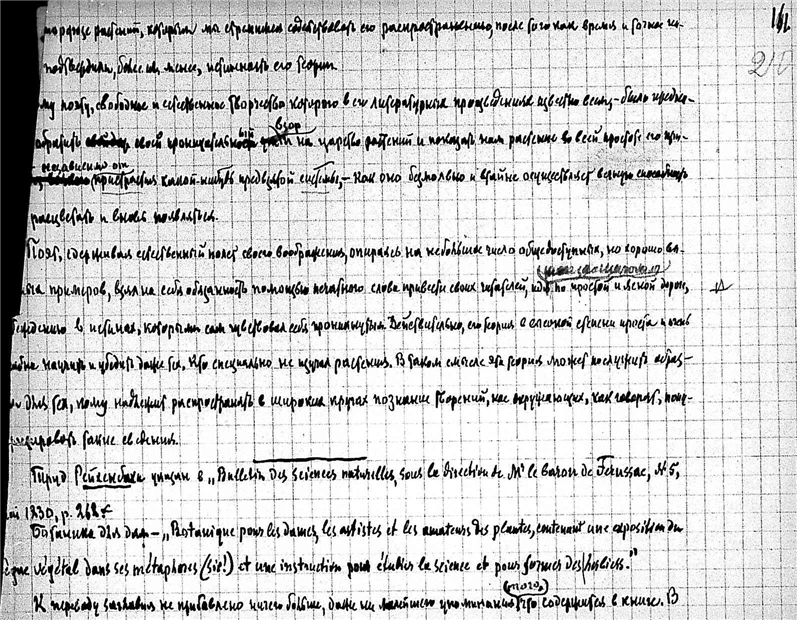 растений, которым мы стремимся содействовать его распространению, после того как время и
подтвердили, более или менее, истинность его теории.
му поэту, свободное и естественное творчество которого в его литературных произведениях известно всему - было
обратить свой проницательный взор на царство растений и показать нам растение во всей простоте его
независимо от пристрастия какой-нибудь предвзятой системы, - как оно безмолвно и втайне осуществляет вечную способность
расцветать и вновь появляться.
Поэт, сдерживая естественный полет своего воображения, опираясь на небольшое число общедоступных, но хорошо
примеров, взял на себя обязанность помощью печатного слова привести своих читателей, по простой и ясной дороге,
в истинах, которыми сам чувствовал себя проникнутым. Действительно, его теория в высокой степени проста и очень
научить и убедить даже тех, кто специально не изучал растения. В таком смысле эта теория может послужить
для тех, кому надлежит распространять в широких кругах познание творений, нас окружающих, как говорят,
такие сведения.
Труд указан в „Bulletin des sciences naturelles, sous la direction de Mr le baron de Ferussac, № 5,
1830, p. 268
Ботаника для дам - „Botanique pour les dames, les artistes et les amateurs des plantes, contenant une exposition du
règne végétal dans ses métaphores (sic!) et une instruction pour étudier la science et pour former des herbiers."
К переводу заглавия не прибавлено ничего больше, даже ни малейшего упоминания того, что содержится в книге. В